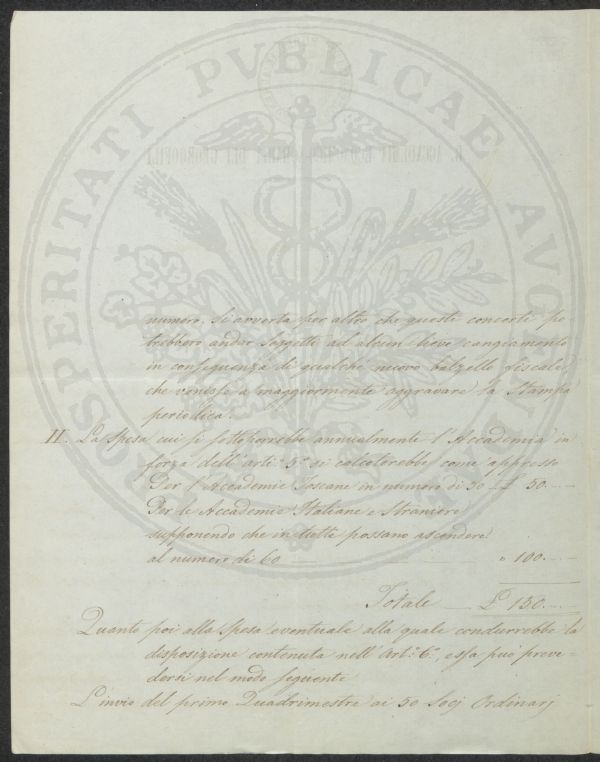 PROSPERITATI PVBLICAE AVGENDAE
R. ACCADEMIA ECONOMICO-AGRARIA DEI GEORGOFILI
numero. Si avverta per altro che questi concerti po-
trebbero andar soggetti ad alcun lieve cangiamento
in conseguenza di qualche nuovo balzello fiscale,
che venisse a maggiormente aggravare la Stampa
periodica.
II. La spesa cui si sottoporrebbe annualmente l'Accademia in
forza dell'arti.° 5.° si calcolerebbe come appresso
Per l'Accademie Toscane in numero di 30 £ 50.--
Per le Accademie Italiane e Straniere
supponendo che in tutte possano ascendere
al numero di 60 " 100.--
Totale £ 150.--
Quanto poi alla spesa eventuale alla quale condurrebbe la
disposizione contenuta nell'Art.° 6.°, essa può preve-
dersi nel modo seguente
L'invio del primo Quadrimestre ai 50 Socj Ordinarj